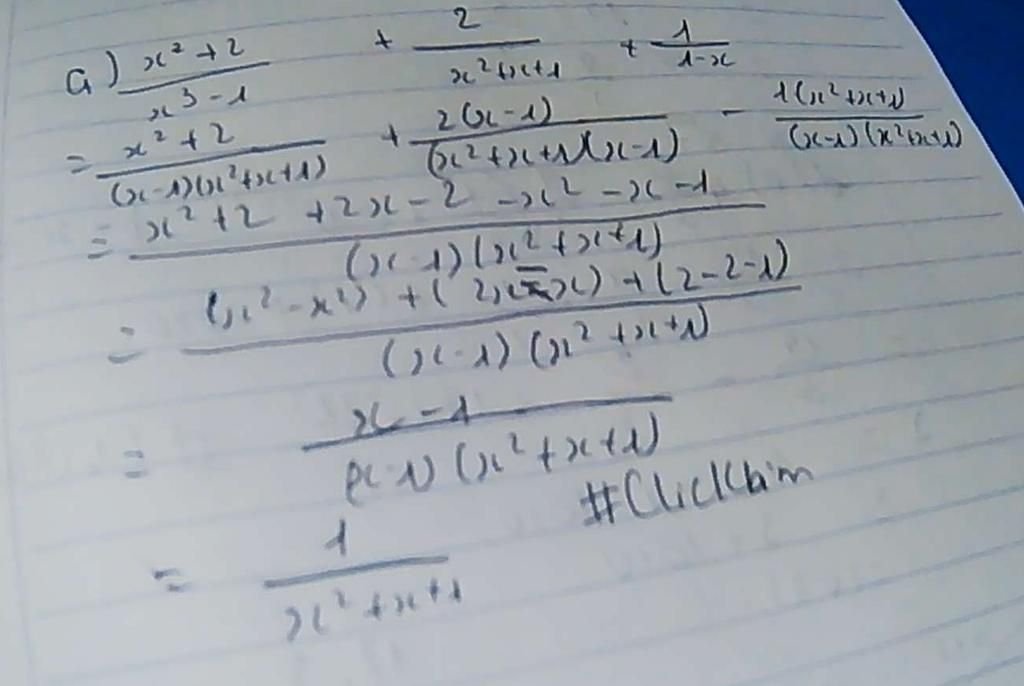 a) \frac{x^2+2}{x^3-1} + \frac{2}{x^2+x+1} + \frac{1}{1-x}
= \frac{x^2+2}{(x-1)(x^2+x+1)} + \frac{2(x-1)}{(x^2+x+1)(x-1)} - \frac{1(x^2+x+1)}{(x-1)(x^2+x+1)}
= \frac{x^2+2+2x-2-x^2-x-1}{(x-1)(x^2+x+1)}
= \frac{(x^2-x^2)+(2x-x)+(2-2-1)}{(x-1)(x^2+x+1)}
= \frac{x-1}{(x-1)(x^2+x+1)}
#Clickbim
= \frac{1}{x^2+x+1}